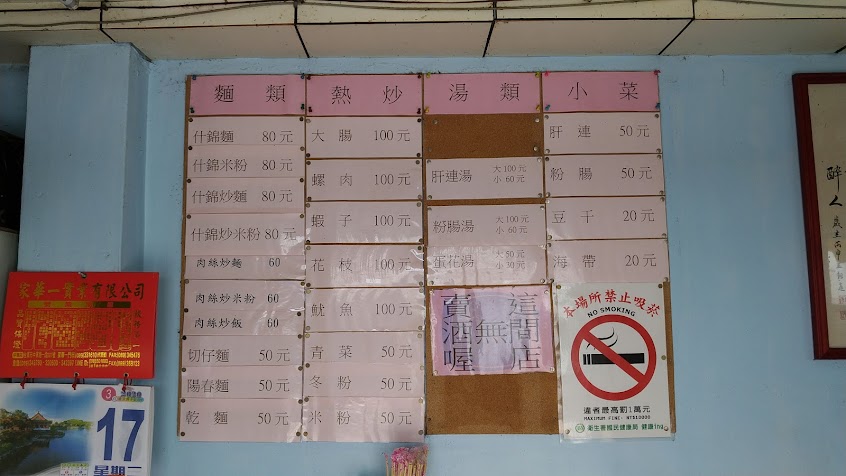 麵類
什錦麵 80元
什錦米粉 80元
什錦炒麵 80元
什錦炒米粉 80元
肉絲炒麵 60
肉絲炒米粉 60
肉絲炒飯 60
切仔麵 50元
陽春麵 50元
乾麵 50元
熱炒
大腸 100元
螺肉 100元
蝦子 100元
花枝 100元
魷魚 100元
青菜 50元
冬粉 50元
米粉 50元
湯類
肝連湯 大100元 小60元
粉腸湯 大100元 小60元
蛋花湯 大50元 小30元
這間店
無
賣酒喔
小菜
肝連 50元
粉腸 50元
豆干 20元
海帶 20元
本場所禁止吸菸
NO SMOKING
違者最高罰1萬元
MAXIMUM FINE: NT$10000
衛生署國民健康局 健康ing
家華一貫業有限公司
品質保證
3
2020
17
星期二
醉人